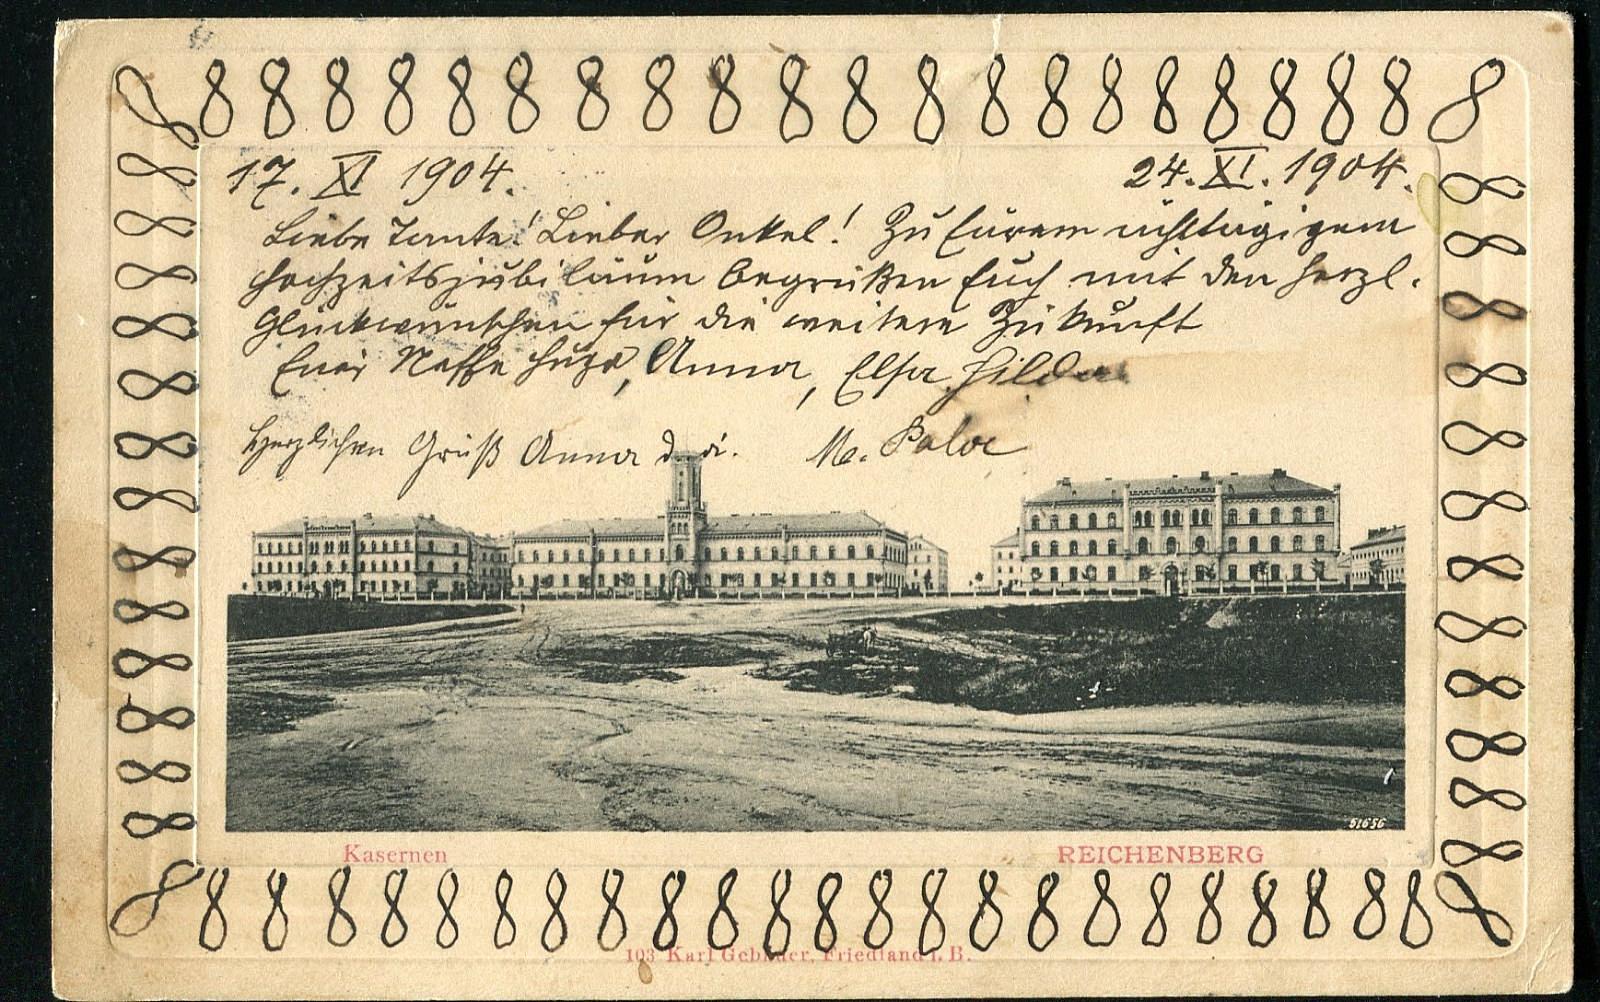 17. XI 1904. 24. XI. 1904.
Liebe Tante! Lieber Onkel! Zu Eurem achttägigem
Hochzeitsjubiläum begrüßen Euch mit den herzl.
Glückwünschen für die weitere Zukunft
Euer Neffe Hugo, Anna, Elsa, Hilda
Herzlichen Gruß Anna M.
8 8 8 8 8 8 8 8 8 8 8 8 8 8 8 8 8 8 8 8 8 8
51656
Kasernen REICHENBERG
103 Karl Gebauer, Friedland i. B.